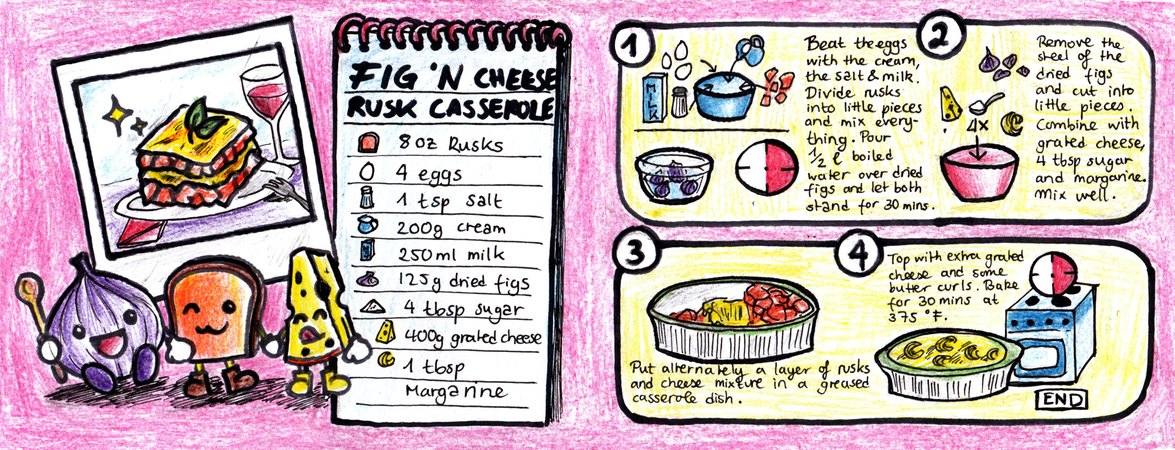 FIG 'N CHEESE
RUSK CASSEROLE
8 oz Rusks
4 eggs
1 tsp salt
200g cream
250ml milk
125g dried figs
4 tbsp sugar
400g grated cheese
1 tbsp
Margarine
1
MILK
Beat the eggs
with the cream,
the salt & milk.
Divide rusks
into little pieces
and mix every-
thing. Pour
1/2 l boiled
water over dried
figs and let both
stand for 30 mins.
2
4x
Remove the
steel of the
dried figs
and cut into
little pieces.
Combine with
grated cheese,
4 tbsp sugar
and margarine.
Mix well.
3
Put alternately a layer of rusks
and cheese mixture in a greased
casserole dish.
4
Top with extra grated
cheese and some
butter curls. Bake
for 30 mins at
375 °F.
END